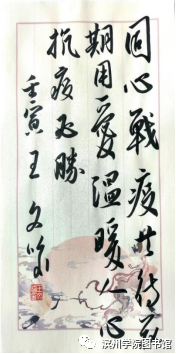 同心戰疫共待花
期用愛溫暖人心
抗疫必勝
壬寅王文
滨州学院图书馆